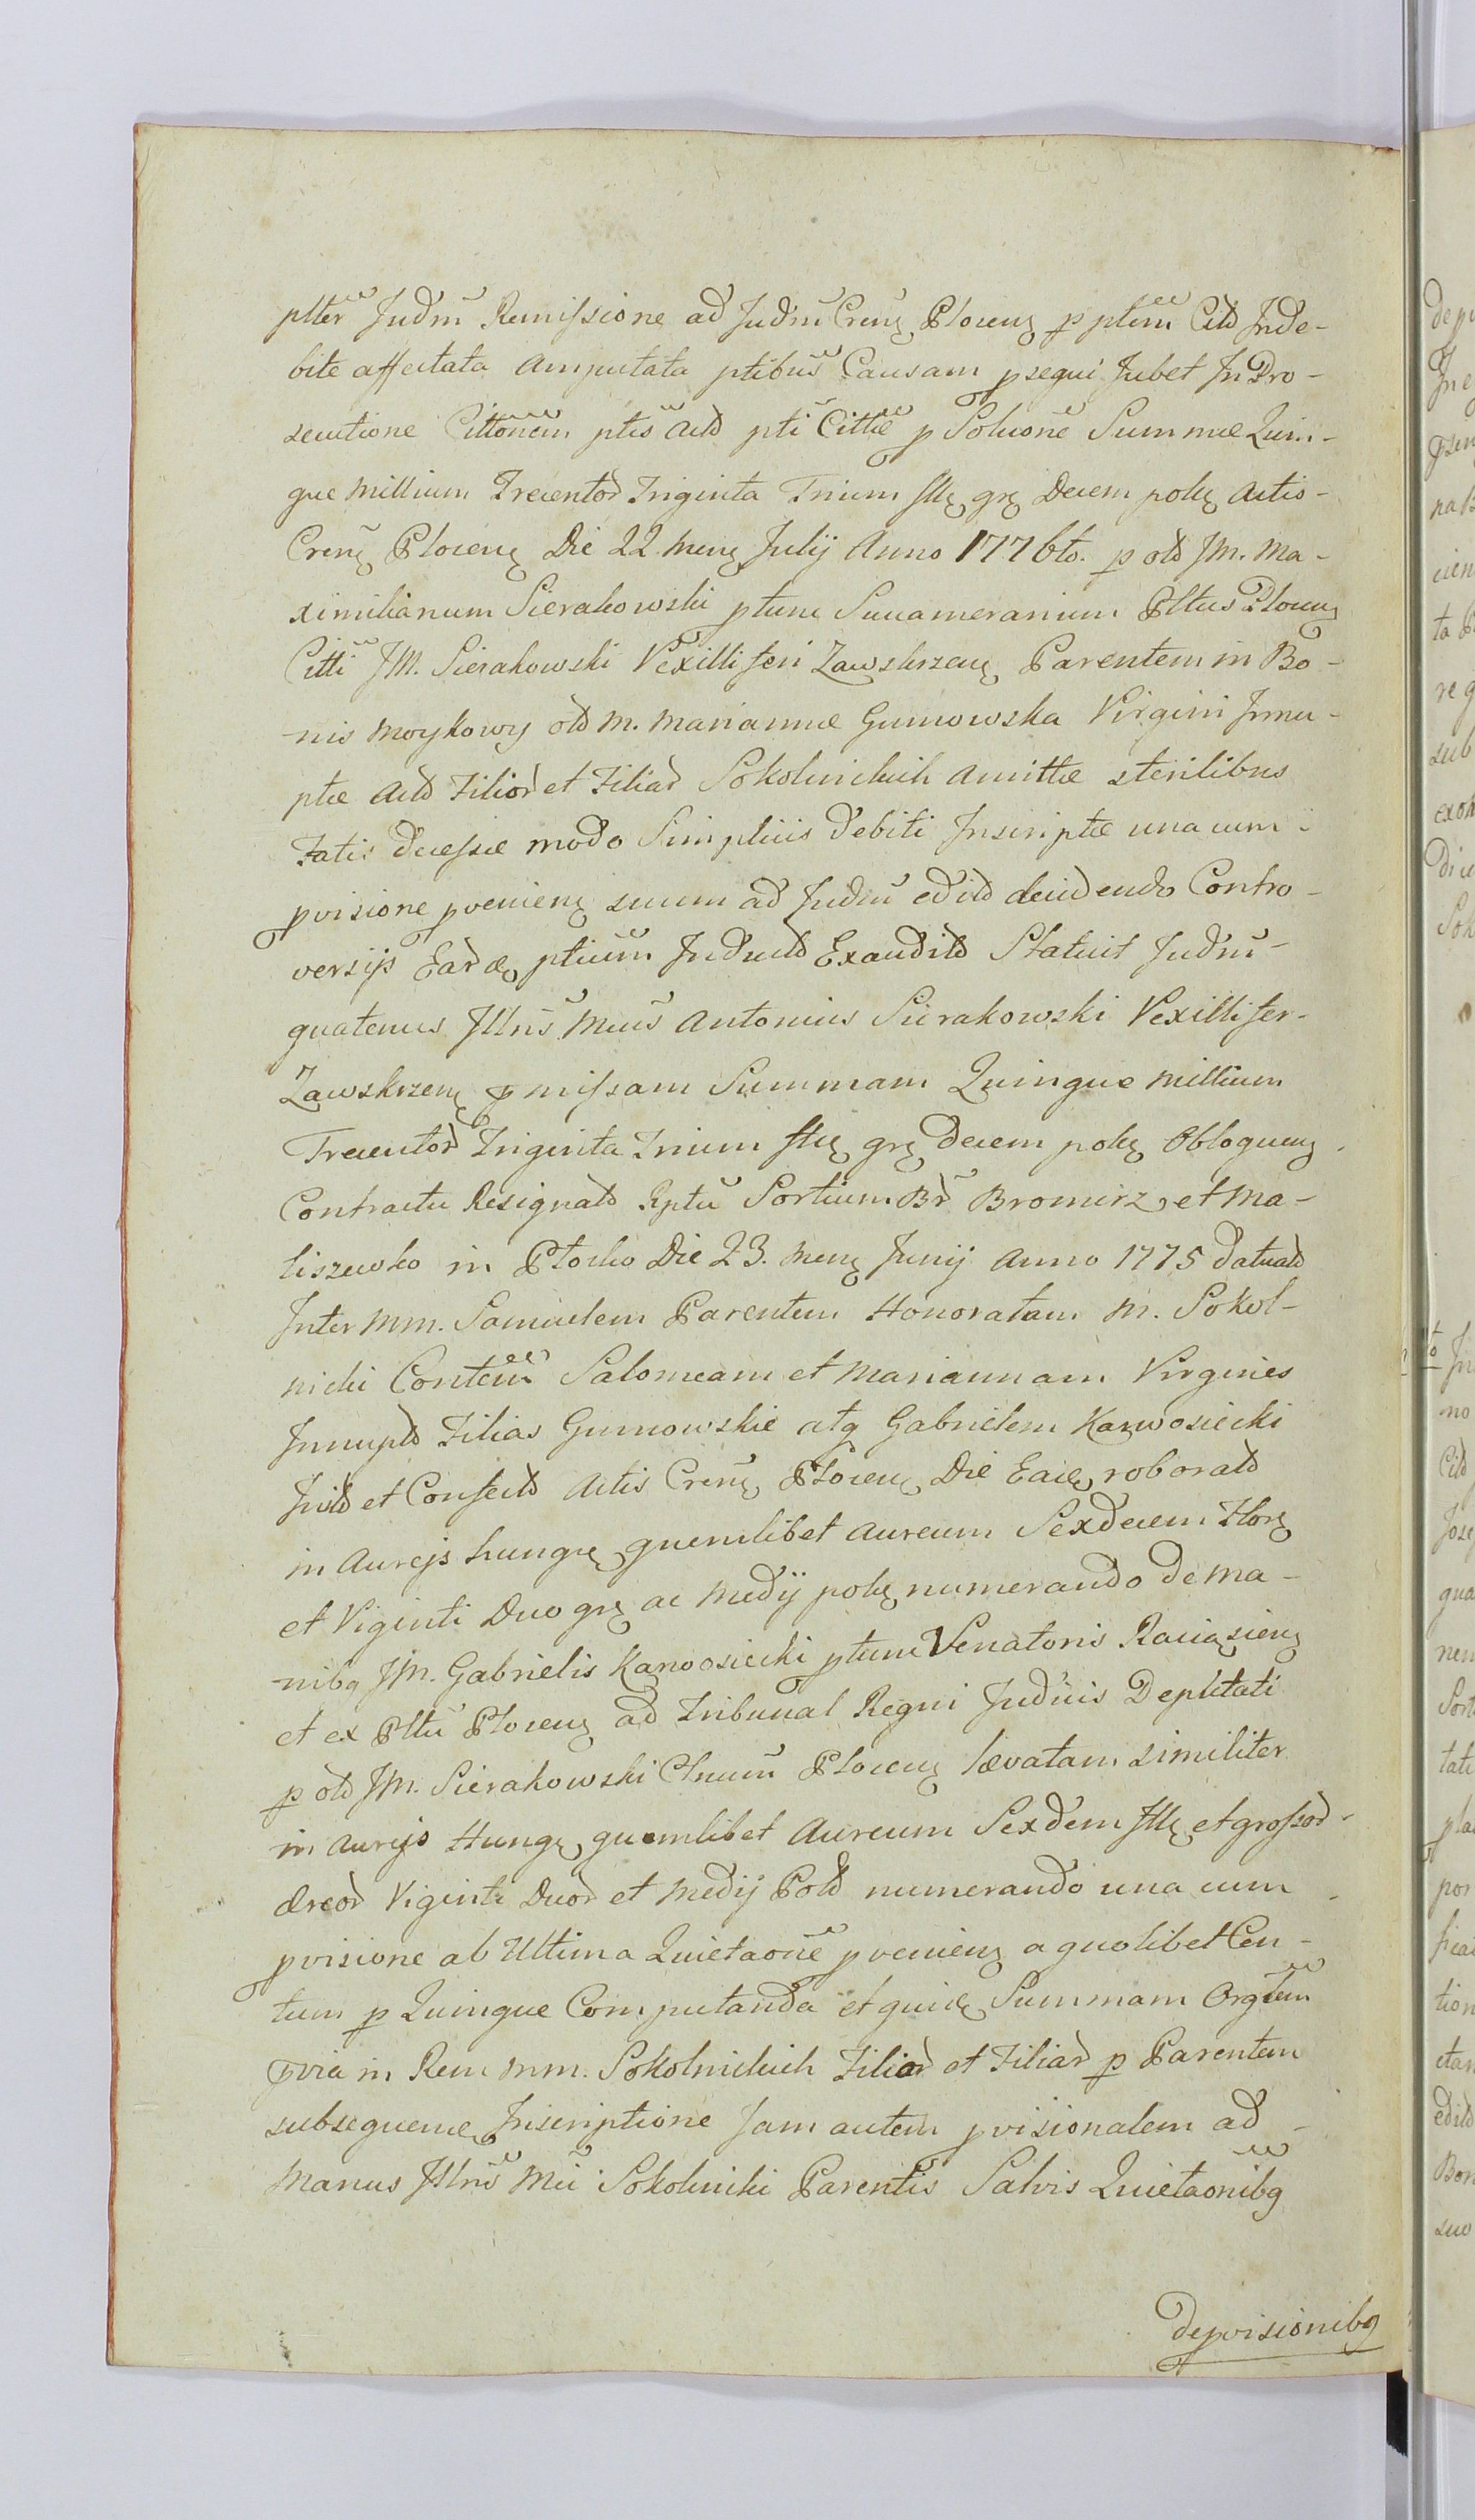 ptter Judm̃ Remissione ad Judm̃ Crenȩ Plocenȩ p ptem̃ Citð Inde-
bite affectata amputata ptibus̃ Causam psequi Jubet In Pro-
secutione Cittoñem ptis actð pti Cittæ p Soluoñe Summæ Quin-
que Millium Trecentoð Triginta Trium flȩ grȩ Decem polȩ Actis-
Crenȩ Plocenȩ Die 22 Menȩ Julij Anno 1776to. p otð JM. Ma-
ximilianum Sierakowski ptunc Succamerarium Pltus Plocenȩ
Citti JM. Sierakowski Vexilliferi Zawskrzenȩ Parentem in Bo-
nis Moykowy otð M. Mariannæ Gumowska Virgini Innu-
ptæ actð Filioð et Filiað Sokolnickich Amittæ sterilibus
Fatis decessæ modo Simplicis debiti Inscriptæ una cum-
pvisione pvenienȩ suum ad Judm̃ editð decidendo Contro-
versijs Eað æȩ ptium̃ Inductð Exauditð Statuit Judm̃-
quatenus Jllñs Mcus̃ Antonius Sierakowski Vexillifer-
Zawskrzenȩ pmissam Summam Quinque Millium
Trecentoð Triginta Trium flȩ grȩ decem polȩ Obloquenȩ
Contractu Resignatð Rptũ Sortium Br̃ Bromirz, et Ma-
liszewko in Płocko Die 23. Menȩ Junij Anno 1775 datuatð
Inter MM. Samuelem Parentem Honoratam M. Sokol-
nicki Contem̃ Salomeam et Mariannam Virgines
Innuptð Filias Gumowskie atq Gabrielem Karwosiecki
Initð et Confectð Actis Crenȩ Plocenȩ Die Eaȩ roboratð
in Aurejs hungȩ quemlibet aureum Sexdecem Florȩ
et Viginti Duo grȩ ac Medij polȩ numerando de Ma-
nibq JM. Gabrielis Karwosiecki ptunc Venatoris Raciązienȩ
et ex Pltũ Plocenȩ ad Tribunal Regni Judicis Deputati
p otð JM. Sierakowski Cnum̃ Plocenȩ lævatam similiter
in Aurejs Hungȩ quemlibet Aureum Sexdem flȩ et grossoð-
æreoð Viginti Duoð et Medij Polð numerando una cum
pvisione ab Ultima Quietaoñe pvenienȩ a quolibet Cen-
tum p Quinque Computanda et quidȩ Summam Orgtem̃
pvia in Rem MM. Sokolnickich Filioð et Filiað p Parentem
subsequenȩ Inscriptione Jam autem pvisionalem ad
Manus Jllñs Mci Sokolnicki Parentis Salvis Quietaoñibq
de pvisionibq